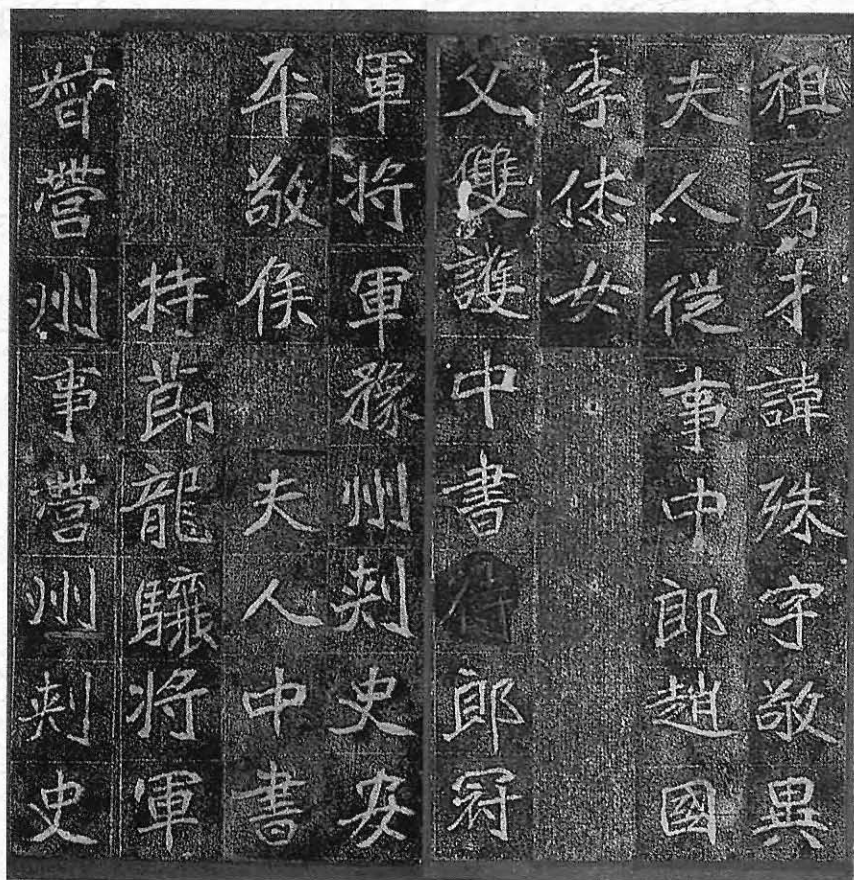 祖秀才諱殊字敬異
夫人從事中郎趙國
李休女
父雙護中書侍郎冠
軍將軍豫州刺史安
平敬侯　夫人中書
持節龍驤將軍
督營州事營州刺史